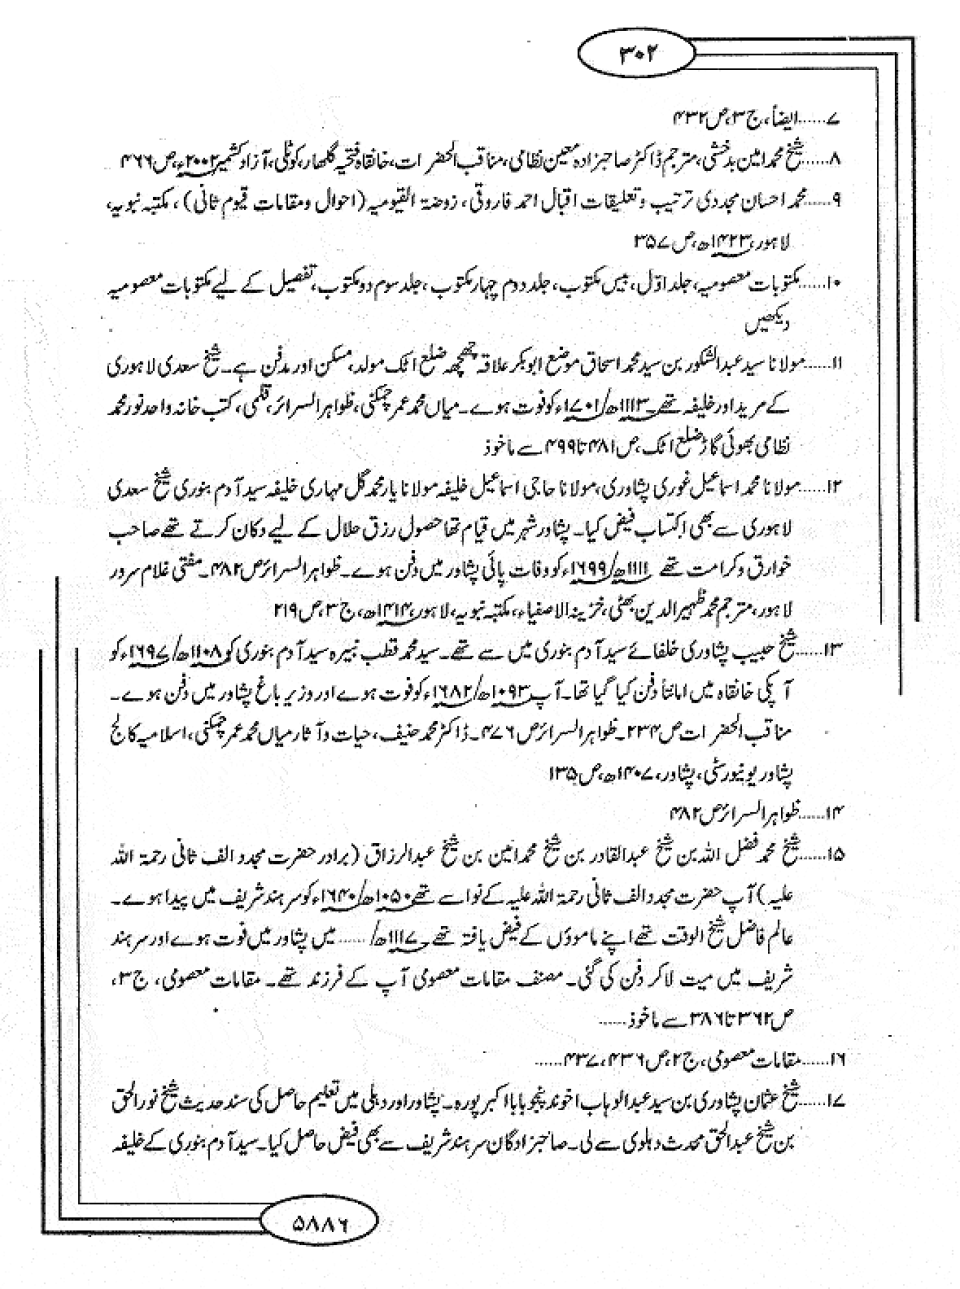 ۳۰۲
۷......ایضاً، ج۳، ص۴۳۲
۸......شیخ محمد امین بدخشی، مترجم ڈاکٹر صاحبزادہ معین نظامی، مناقب الحضرات، خانقاہ فتحیہ گلہار، کوٹلی، آزاد کشمیر ۲۰۰۲ء، ص۴۶۶
۹......محمد احسان مجددی ترتیب و تعلیقات اقبال احمد فاروقی، روضۃ القیومیہ (احوال و مقامات قیوم ثانی)، مکتبہ نبویہ،
لاہور، ۱۴۲۳ھ، ص۳۵۷
۱۰......مکتوبات معصومیہ، جلد اوّل، بیس مکتوب، جلد دوم چہار مکتوب، جلد سوم دو مکتوب، تفصیل کے لیے مکتوبات معصومیہ
دیکھیں
۱۱......مولانا سید عبدالشکور بن سید محمد اسحاق موضع ابوبکر علاقہ چھچھ ضلع اٹک مولد، مسکن اور مدفن ہے۔ شیخ سعدی لاہوری
کے مرید اور خلیفہ تھے۔ ۱۱۱۳ھ/۱۷۰۱ء کو فوت ہوے۔ میاں محمد عمر چمکنی، ظواہر السرائر، قلمی، کتب خانہ واحد نور محمد
نظامی بھوئی گاڑ ضلع اٹک، ص۴۸۱ تا ۴۹۹ سے ماخوذ
۱۲......مولانا محمد اسماعیل غوری پشاوری، مولانا حاجی اسماعیل خلیفہ مولانا یار محمد گل مہاری خلیفہ سید آدم بنوری شیخ سعدی
لاہوری سے بھی اکتساب فیض کیا۔ پشاور شہر میں قیام تھا حصول رزق حلال کے لیے دکان کرتے تھے صاحب
خوارق و کرامت تھے ۱۱۱۱ھ/۱۶۹۹ء کو وفات پائی پشاور میں دفن ہوے۔ ظواہر السرائر ص۴۸۲۔ مفتی غلام سرور
لاہور، مترجم محمد ظہیر الدین بھٹی، خزینۃ الاصفیاء، مکتبہ نبویہ، لاہور، ۱۴۱۴ھ، ج۳، ص۲۱۹
۱۳......شیخ حبیب پشاوری خلفائے سید آدم بنوری میں سے تھے۔ سید محمد قطب نبیرہ سید آدم بنوری کو ۱۱۰۸ھ/۱۶۹۷ء کو
آپکی خانقاہ میں امانتاً دفن کیا گیا تھا۔ آپ ۱۰۹۳ھ/۱۶۸۲ء کو فوت ہوے اور وزیر باغ پشاور میں دفن ہوے۔
مناقب الحضرات ص۲۳۴۔ ظواہر السرائر ص۴۷۶۔ ڈاکٹر محمد حنیف، حیات و آثار میاں محمد عمر چمکنی، اسلامیہ کالج
پشاور یونیورسٹی، پشاور، ۱۴۰۷ھ، ص۱۳۵
۱۴......ظواہر السرائر ص۴۸۲
۱۵......شیخ محمد فضل اللہ بن شیخ عبدالقادر بن شیخ محمد امین بن شیخ عبدالرزاق (برادر حضرت مجدد الف ثانی رحمۃ اللہ
علیہ) آپ حضرت مجدد الف ثانی رحمۃ اللہ علیہ کے نواسے تھے ۱۰۵۰ھ/۱۶۴۰ء کو سرہند شریف میں پیدا ہوے۔
عالم فاضل شیخ الوقت تھے اپنے ماموؤں کے فیض یافتہ تھے ۱۱۱۷ھ/...... میں پشاور میں فوت ہوے اور سرہند
شریف میں میت لا کر دفن کی گئی۔ مصنف مقامات معصومی آپ کے فرزند تھے۔ مقامات معصومی، ج۳،
ص۳۶۲ تا ۳۸۶ سے ماخوذ......
۱۶......مقامات معصومی، ج۲، ص۴۳۶، ۴۳۷......
۱۷......شیخ عثمان پشاوری بن سید عبدالوہاب اخوند پنجو بابا اکبر پورہ۔ پشاور اور دہلی میں تعلیم حاصل کی سند حدیث شیخ نورالحق
بن شیخ عبدالحق محدث دہلوی سے لی۔ صاحبزادگان سرہند شریف سے بھی فیض حاصل کیا۔ سید آدم بنوری کے خلیفہ
۵۸۸۶